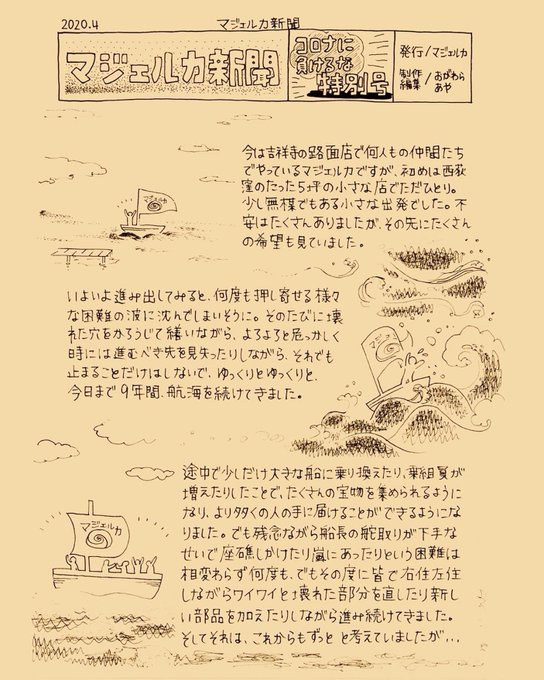 2020.4
マジェルカ新聞
マジェルカ新聞
コロナに
負けるな
特別号
発行/マジェルカ
制作
編集/おがわら
あや
今は吉祥寺の路面店で何人もの仲間たち
でやっているマジェルカですが、初めは西荻
窪のたった5坪の小さな店でただひとり。
少し無様でもある小さな出発でした。不
安はたくさんありましたが、その先にたくさん
の希望も見ていました。
マジェルカ
いよいよ進み出してみると、何度も押し寄せる様々
な困難の波に沈んでしまいそうに。そのたびに壊
れた穴をかろうじて繕いながら、よろよろと危っかしく
時には進むべき先を見失ったりしながら、それでも
止まることだけはしないで、ゆっくりとゆっくりと、
今日まで9年間、航海を続けてきました。
マジェルカ
途中で少しだけ大きな船に乗り換えたり、乗組員が
増えたりしたことで、たくさんの宝物を集められるように
なり、より多くの人の手に届けることができるようにな
りました。でも残念ながら船長の舵取りが下手な
せいで座礁しかけたり嵐にあったりという困難は
相変わらず何度も、でもその度に皆で右往左往
しながらワイワイと壊れた部分を直したり新し
い部品を加えたりしながら進み続けてきました。
そしてそれは、これからもずっと と考えていましたが…
マジェルカ